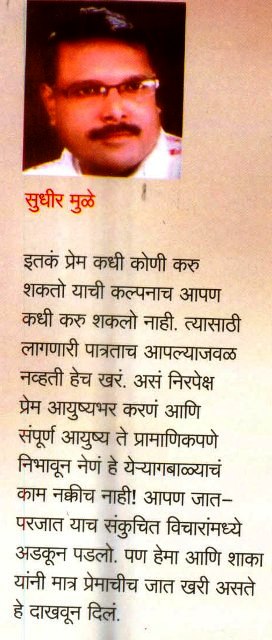 सुधीर मुळे
इतकं प्रेम कधी कोणी करु
शकतो याची कल्पनाच आपण
कधी करु शकलो नाही. त्यासाठी
लागणारी पात्रताच आपल्याजवळ
नव्हती हेच खरं. असं निरपेक्ष
प्रेम आयुष्यभर करणं आणि
संपूर्ण आयुष्य ते प्रामाणिकपणे
निभावून नेणं हे येऱ्यागबाळ्याचं
काम नक्कीच नाही! आपण जात–
परजात याच संकुचित विचारांमध्ये
अडकून पडलो. पण हेमा आणि शाका
यांनी मात्र प्रेमाचीच जात खरी असते
हे दाखवून दिलं.